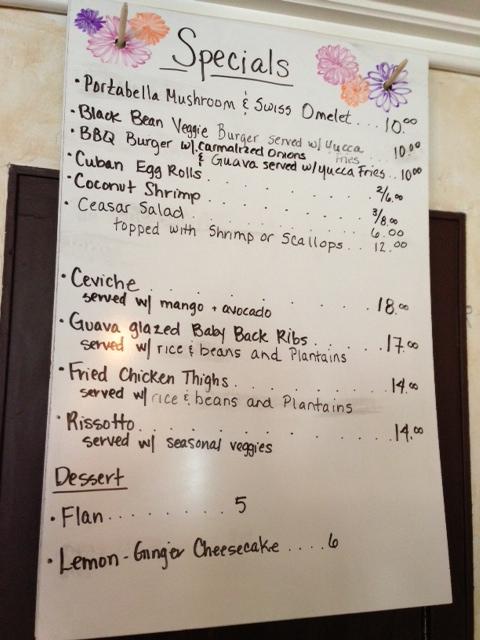 Specials
· Portabella Mushroom & Swiss Omelet... 10.00
· Black Bean Veggie Burger served w/ yucca fries 10.00
· BBQ Burger w/ carmalized Onions & Guava served w/ yucca Fries.. 10.00
· Cuban Egg Rolls . . . . . . . 2/6.00
· Coconut Shrimp . . . . . . . 3/8.00
· Ceasar Salad . . . . . . . 6.00
topped with Shrimp or Scallops.. 12.00
· Ceviche . . . . . . . 18.00
served w/ mango + avocado
· Guava glazed Baby Back Ribs . . . . 17.00
served w/ rice & beans and Plantains
· Fried Chicken Thighs . . . . . . 14.00
served w/ rice & beans and Plantains
· Rissotto . . . . . . . . . 14.00
served w/ seasonal veggies
Dessert
· Flan . . . . . . . . 5
· Lemon-Ginger Cheesecake .... 6